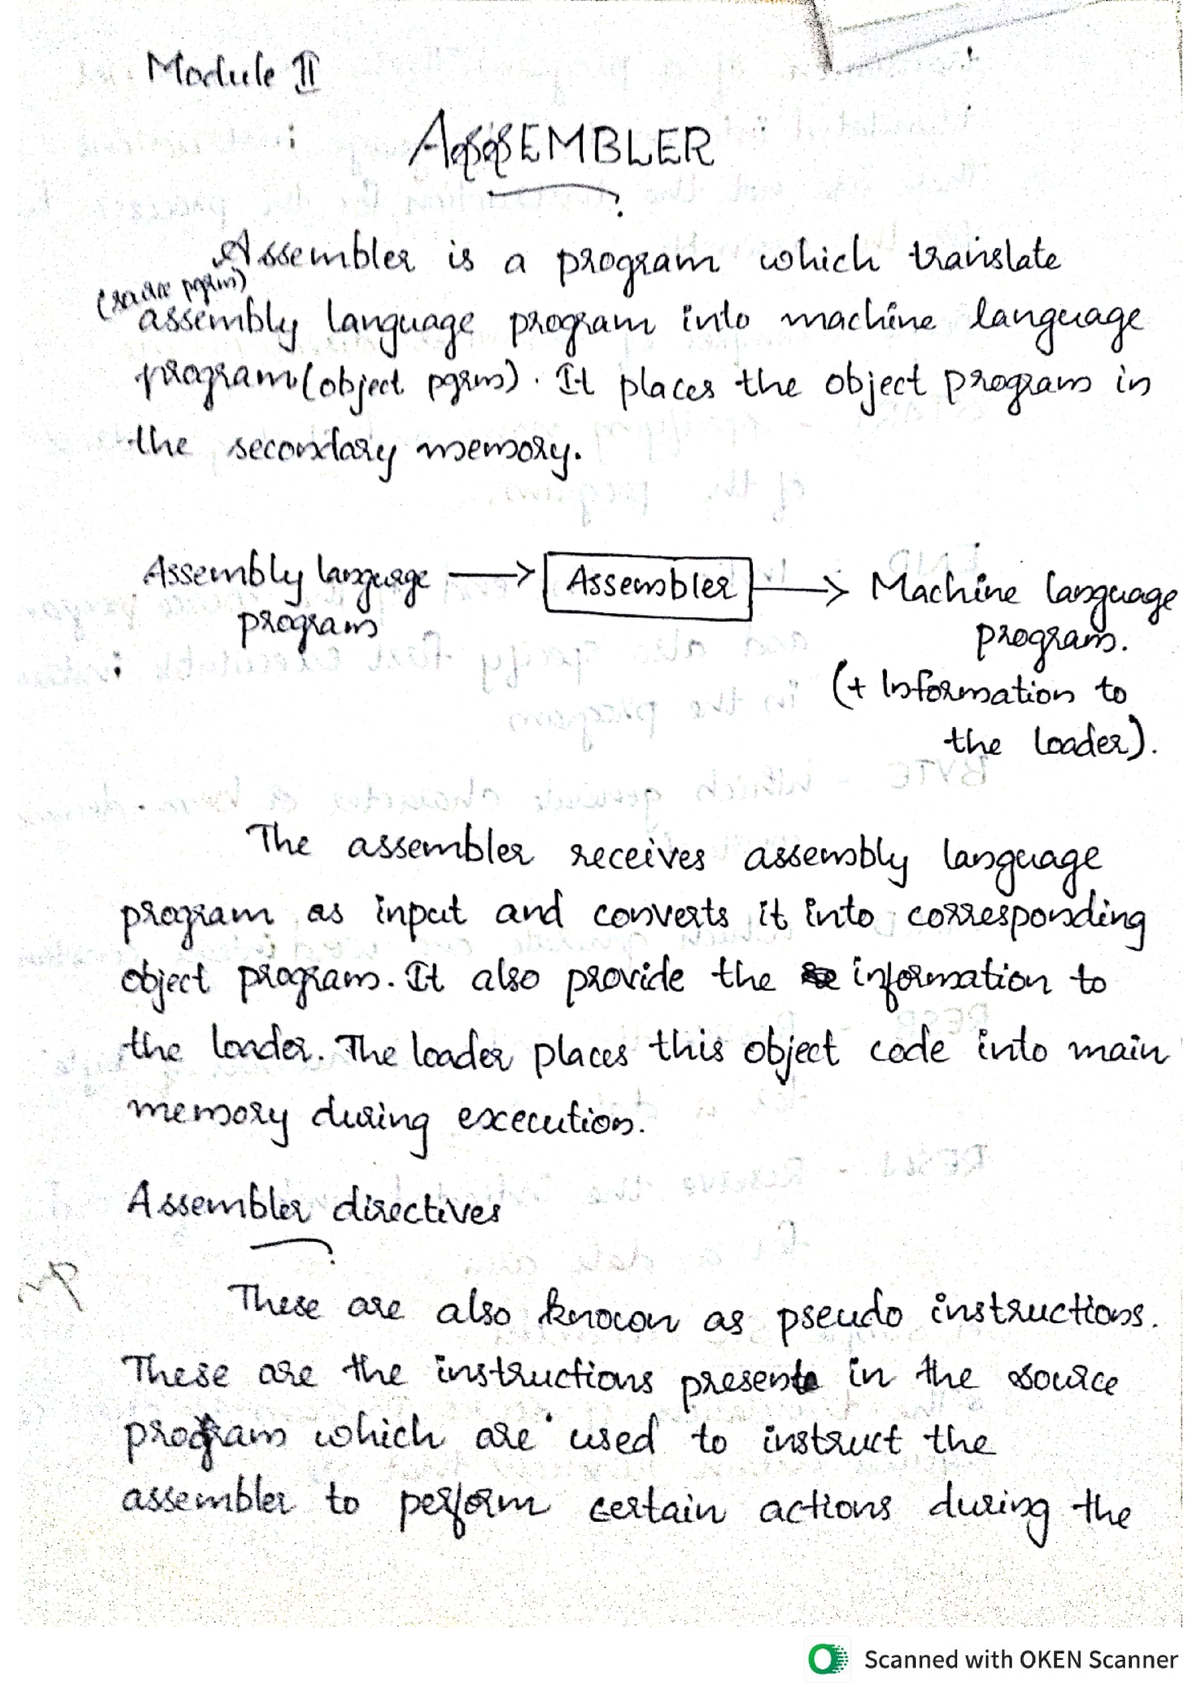 Module II
ASSEMBLER
Assembler is a program which translate
(source pgrm)
assembly language program into machine language
program (object pgrm). It places the object program in
the secondary memory.
Assembly language program → Assembler → Machine language program.
(+ Information to
the loader).
The assembler receives assembly language
program as input and converts it into corresponding
object program. It also provide the information to
the loader. The loader places this object code into main
memory during execution.
Assembler directives
These are also known as pseudo instructions.
These are the instructions present in the source
program which are used to instruct the
assembler to perform certain actions during the
Scanned with OKEN Scanner